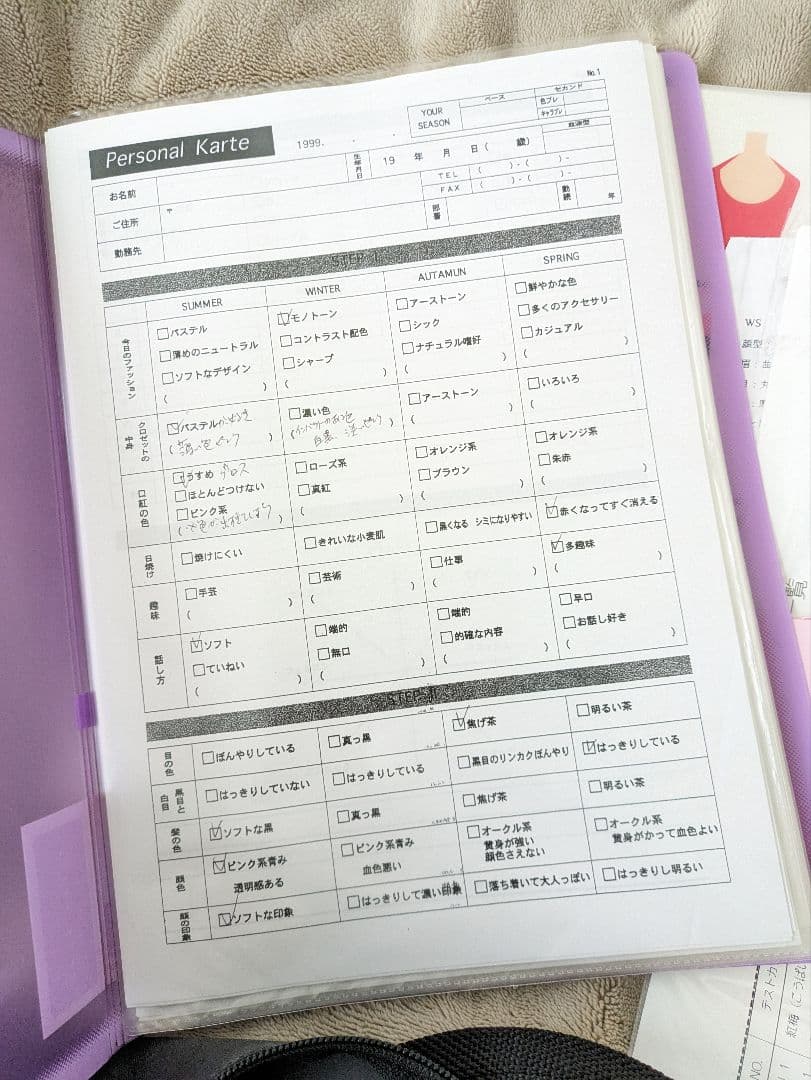 No.1
Personal Karte
1999. . .
YOUR SEASON
ベース
セカンド
色ブレ
キャラブレ
お名前
生年月日
19 年 月 日( 歳)
血液型
ご住所
〒
TEL ( )-( )-
FAX ( )-( )-
勤務先
部署
勤続
年
STEP I
SUMMER WINTER AUTAMUN SPRING
今日のファッション
□パステル
□薄めのニュートラル
□ソフトなデザイン
( )
☑モノトーン
□コントラスト配色
□シャープ
( )
□アーストーン
□シック
□ナチュラル嗜好
( )
□鮮やかな色
□多くのアクセサリー
□カジュアル
( )
クロゼットの中身
☑パステル
□濃い色
□アーストーン
( )
□いろいろ
( )
口紅の色
☑うすめ グロス
□ほとんどつけない
□ピンク系
□ローズ系
□真紅
( )
□オレンジ系
□ブラウン
( )
□オレンジ系
□朱赤
( )
日焼け
□焼けにくい
□きれいな小麦肌
□黒くなる シミになりやすい
☑赤くなってすぐ消える
趣味
□手芸
( )
□芸術
( )
□仕事
( )
☑多趣味
( )
話し方
☑ソフト
□ていねい
( )
□端的
□無口
( )
□端的
□的確な内容
( )
□早口
□お話し好き
( )
STEP II
目の色
□ぼんやりしている
□真っ黒
☑焦げ茶
□明るい茶
黒目と白目
□はっきりしていない
□はっきりしている
□黒目のリンカクぼんやり
☑はっきりしている
髪の色
☑ソフトな黒
□真っ黒
□焦げ茶
□明るい茶
顔色
☑ピンク系青み
透明感ある
□ピンク系青み
血色悪い
□オークル系
黄身が強い
顔色さえない
□オークル系
黄身がかって血色よい
顔の印象
☑ソフトな印象
□はっきりして濃い印象
□落ち着いて大人っぽい
□はっきりし明るい
WS
顔型
覧
テストカ
紅梅(こうば
NO.
1